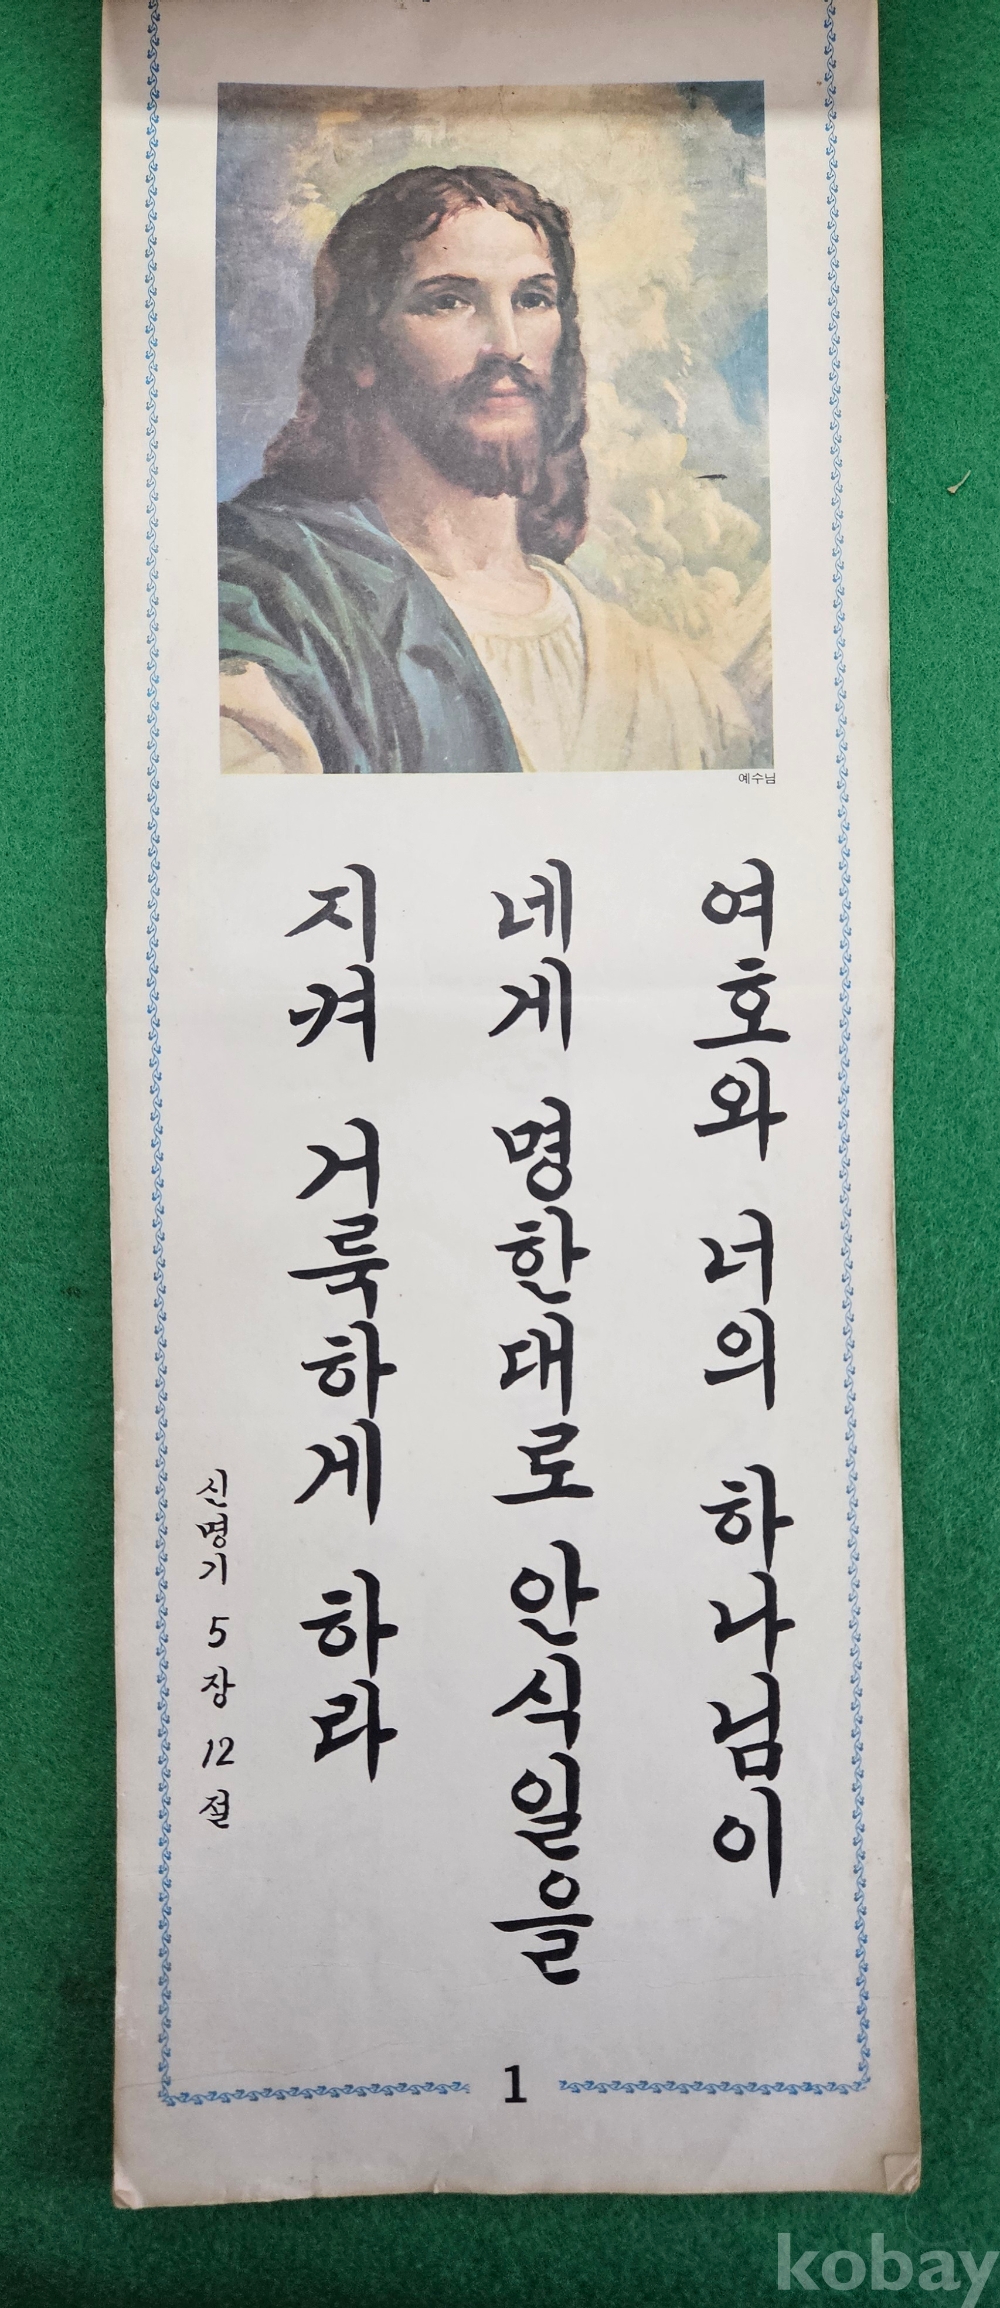 예수님
여호와 너의 하나님이
네게 명한대로 안식일을
지켜 거룩하게 하라
신명기 5장 12절
1
kobay